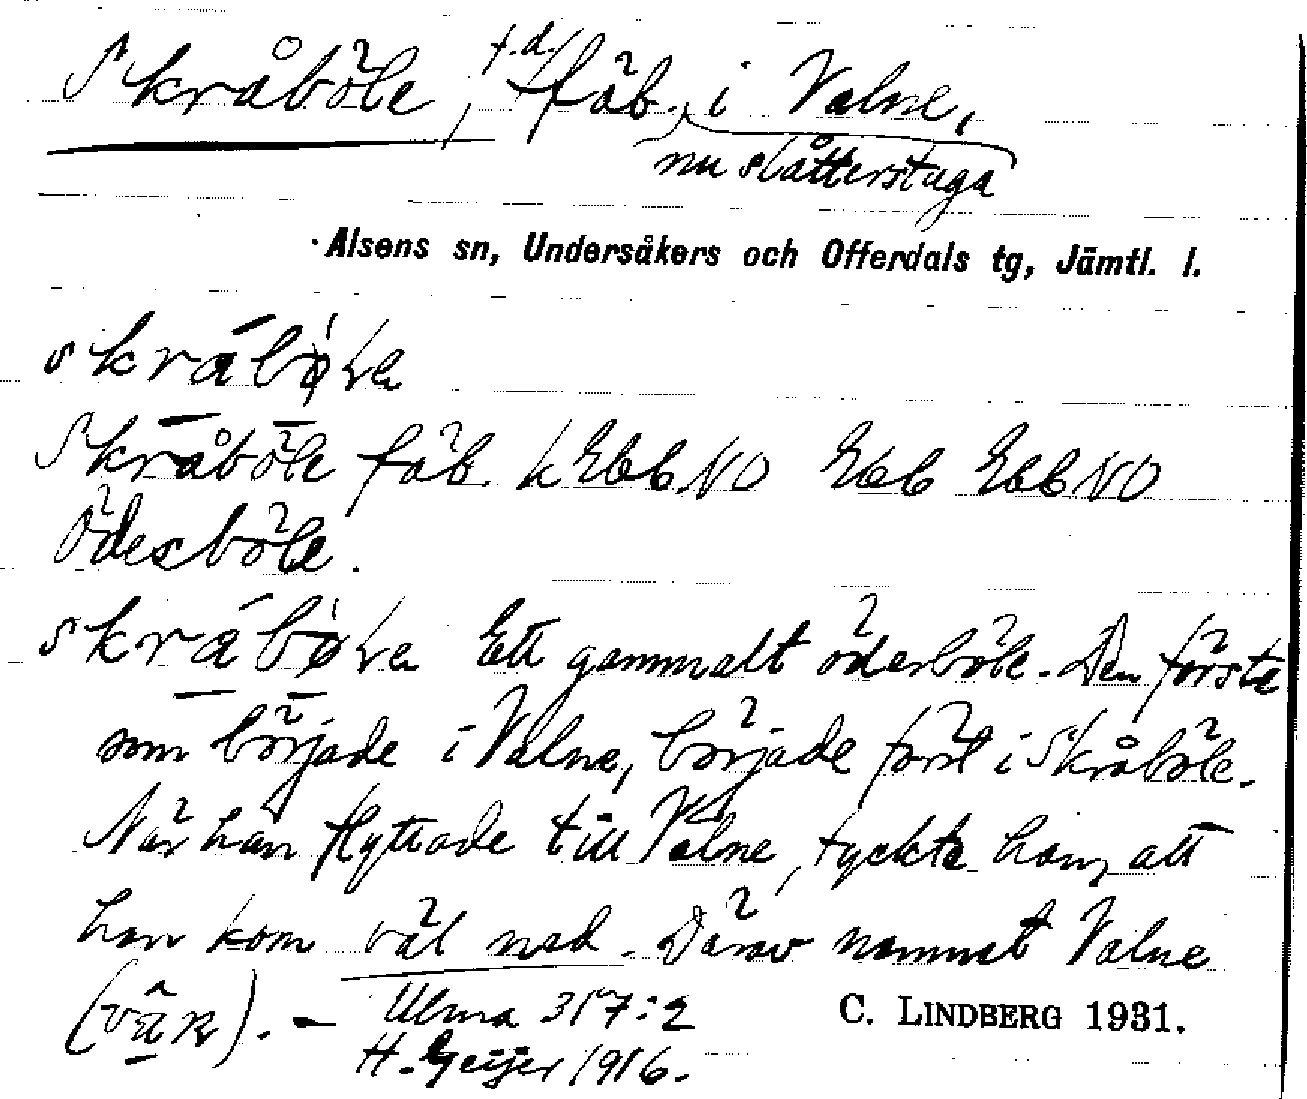 Skråböle, f.d. fäb. i Valne,
nu slåtterstuga
Alsens sn, Undersåkers och Offerdals tg, Jämtl. l.
Skråböle fäb. k Ebb NO Ebb Ebb NO
Ödesböle.
Ett gammalt ödesböle. Den första
som började i Valne, började först i Skråböle.
När han flyttade till Valne, tyckte han, att
han kom väl ned. Därav namnet Valne
Ulma 317:2
C. LINDBERG 1931.
H. Geijer 1916.